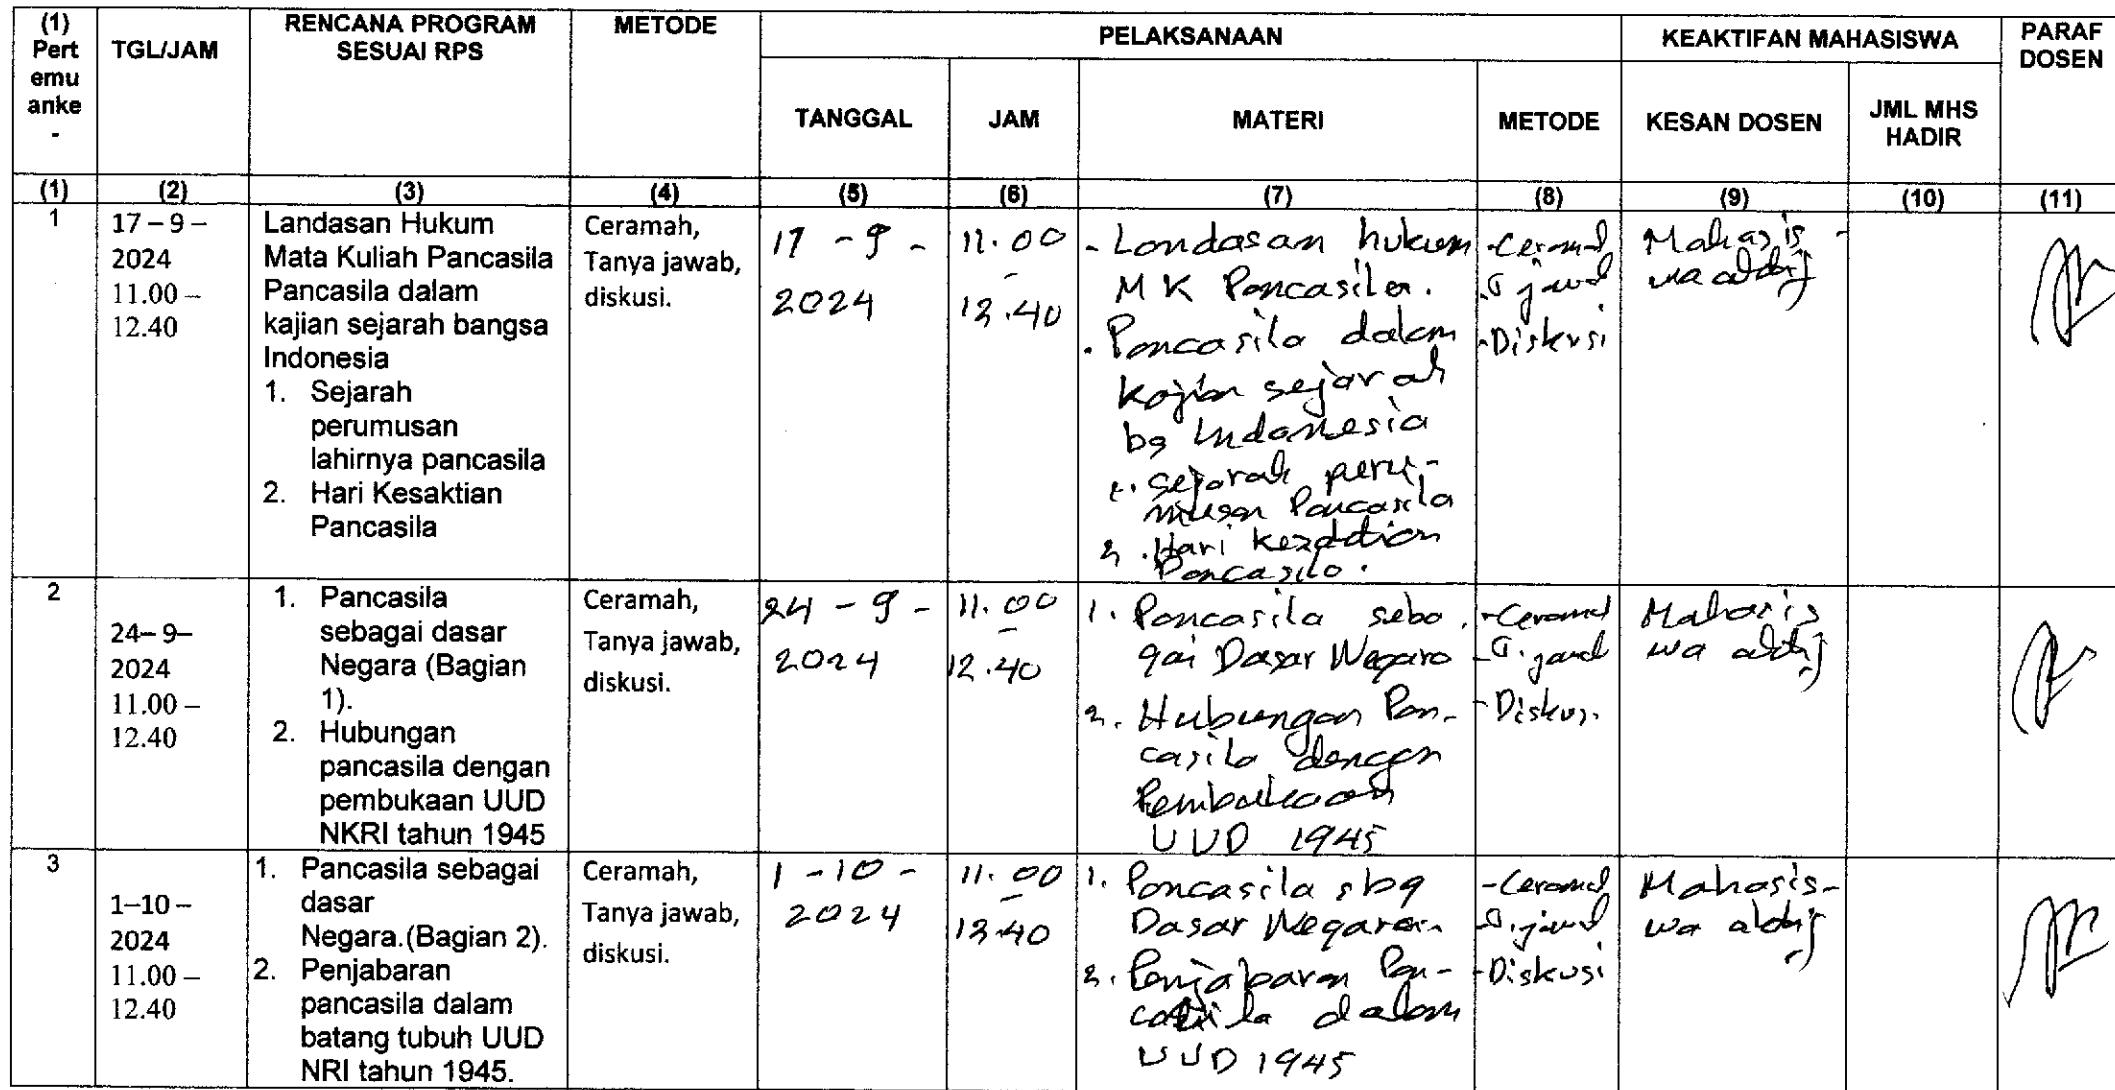 (1)
Pert
emu
anke
-
TGL/JAM
RENCANA PROGRAM
SESUAI RPS
METODE
PELAKSANAAN
KEAKTIFAN MAHASISWA
PARAF
DOSEN
TANGGAL
JAM
MATERI
METODE
KESAN DOSEN
JML MHS
HADIR
(1)
(2)
(3)
(4)
(5)
(6)
(7)
(8)
(9)
(10)
(11)
1
17 – 9 –
2024
11.00 –
12.40
Landasan Hukum
Mata Kuliah Pancasila
Pancasila dalam
kajian sejarah bangsa
Indonesia
1. Sejarah
perumusan
lahirnya pancasila
2. Hari Kesaktian
Pancasila
Ceramah,
Tanya jawab,
diskusi.
17 - 9 -
2024
11.00
-
12.40
- Landasan hukum
MK Pancasila.
- Pancasila dalam
kajian sejarah
bg Indonesia
1. Sejarah peru-
musan Pancasila
2. Hari kesaktian
Pancasila.
- Ceramah
- T. jawab
- Diskusi
Mahasis-
wa
2
24– 9–
2024
11.00 –
12.40
1. Pancasila
sebagai dasar
Negara (Bagian
1).
2. Hubungan
pancasila dengan
pembukaan UUD
NKRI tahun 1945
Ceramah,
Tanya jawab,
diskusi.
24 - 9 -
2024
11.00
-
12.40
1. Pancasila seba
gai Dasar Negara
2. Hubungan Pan-
casila dengan
Pembukaan
UUD 1945
- Ceramah
- T. jawab
- Diskusi
Mahasis
wa
3
1–10 –
2024
11.00 –
12.40
1. Pancasila sebagai
dasar
Negara.(Bagian 2).
2. Penjabaran
pancasila dalam
batang tubuh UUD
NRI tahun 1945.
Ceramah,
Tanya jawab,
diskusi.
1 - 10 -
2024
11.00
-
12.40
1. Pancasila sbg
Dasar Negara
2. Penjabaran Pan-
casila dalam
UUD 1945
- Ceramah
- T. jawab
- Diskusi
Mahasis-
wa